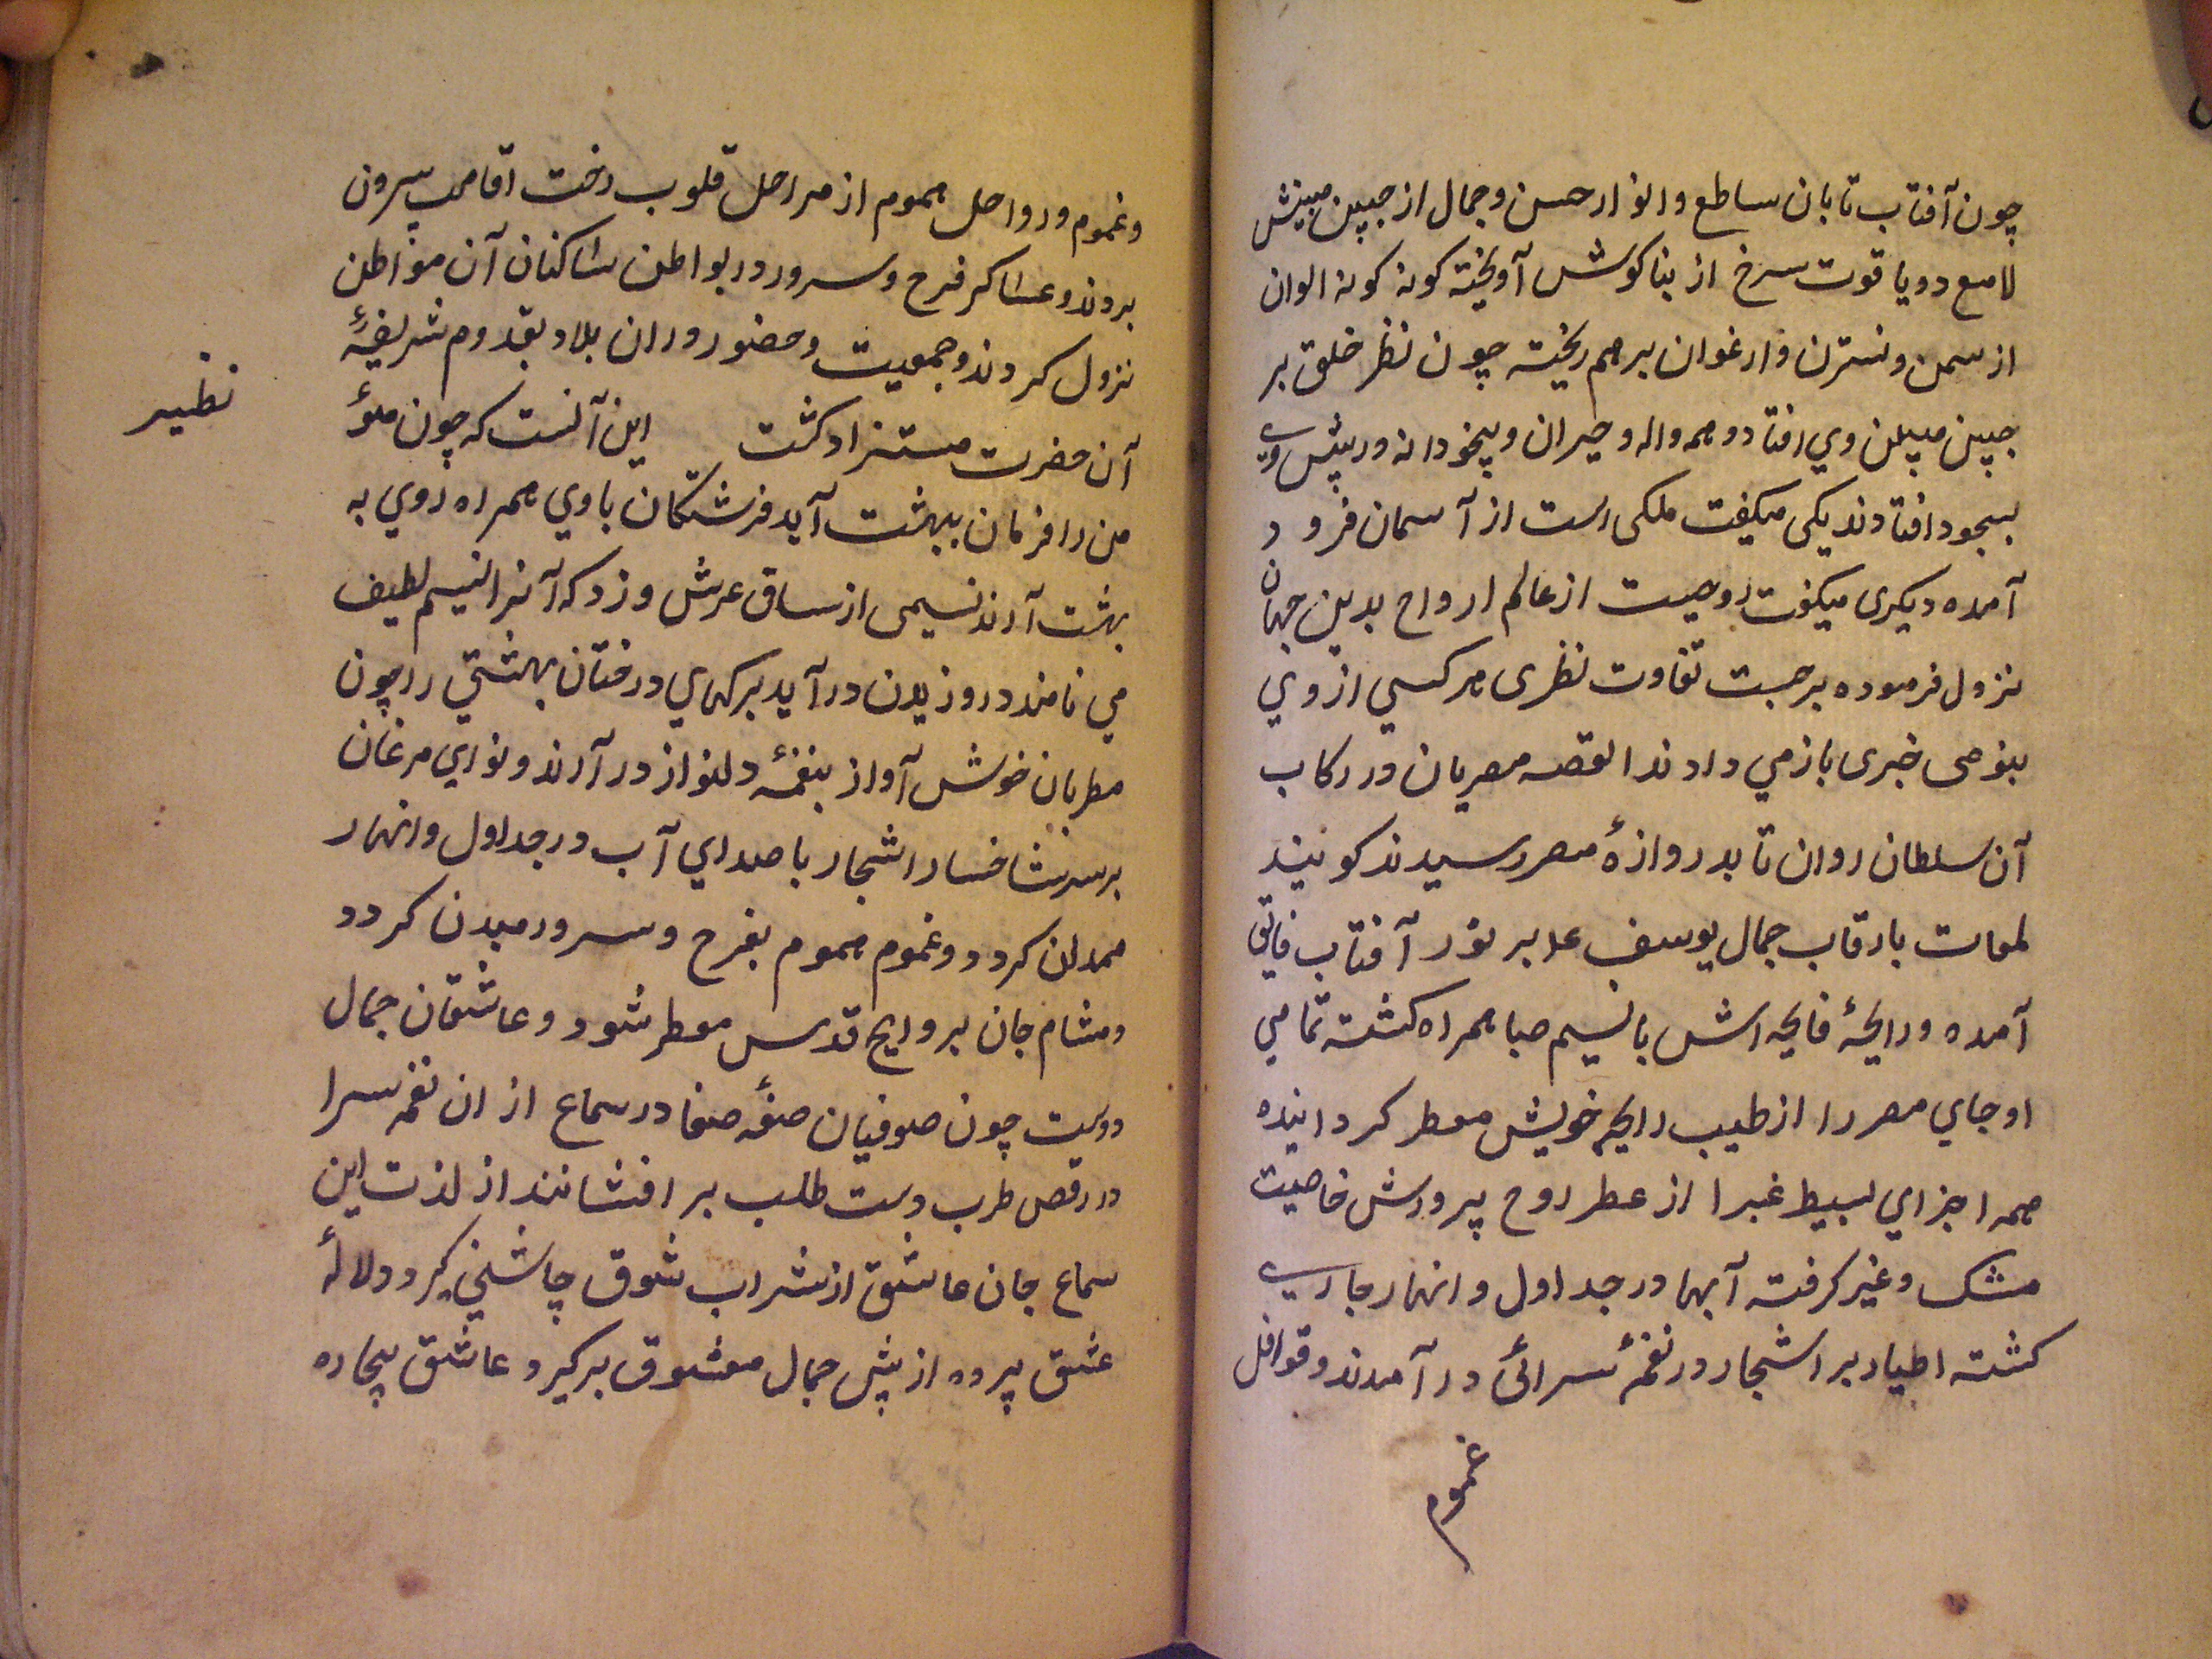 چون آفتاب تابان ساطع و انوار حسن و جمال از جبین مبینش
لامع دو یاقوت سرخ از بناکوش آویخته کونه کونه الوان
از سمن و نسترن و ارغوان بر هم ریخته چون نظر خلق بر
جبین مبین وی افتاد و همه واله و حیران و بیخودانه در پیش وی
بسجود افتادند یکی میکفت ملکی است از آسمان فرود
آمده دیکری میکفت روحیست از عالم ارواح بدین جهان
نزول فرموده بر حسب تفاوت نظری هر کسی از وی
بنوعی خبری باز می دادند القصه مصریان در رکاب
آن سلطان روان تا بدروازهٔ مصر رسیدند کویند
لمعات جمال یوسف عم بر نور آفتاب فایق
آمده و رایحهٔ فایحه اش با نسیم صبا همراه کشته تمامی
او جای مصر را از طیب رایحه خویش معطر کردانیده
همه اجزای بسیط غبرا از عطر روح پرورش خاصیت
مشک و عنبر کرفته آبها در جداول و انهار جاری
کشته اطیار بر اشجار در نغمهٔ سرائی در آمدند و قوافل
غموم
و غموم و رواحل هموم از مراحل قلوب رخت اقامت بیرون
بردند و عساکر فرح و سرور در بواطن ساکنان آن مواطن
نزول کردند و جمعیت و حضور در ان بلاد بقدوم شریفهٔ
آن حضرت مستزاد کشت این آنست که چون مؤ
نظیر
من را فرمان ببهشت آید فرشتکان با وی همراه روی به
بهشت آرند نسیمی از ساق عرش وزد که آنرا نسیم لطیف
می نامند در وزیدن در آید برکهای درختان بهشتی را چون
مطربان خوش آواز بنغمهٔ دلنواز در آرند و نوای مرغان
بر سر شاخسار اشجار با صدای آب در جداول و انهار
کردد و غموم هموم بفرح و سرور مبدل کردد
و مشام جان بروایح قدس معطر شود و عاشقان جمال
دوست چون صوفیان صفهٔ صفا در سماع از ان نغمه سرا
در رقص طرب دست طلب بر افشانند از لذت این
سماع جان عاشق از شراب شوق چاشنی کیرد و لالهٔ
عشق پرده از پیش جمال معشوق برکیرد عاشق بیچاره